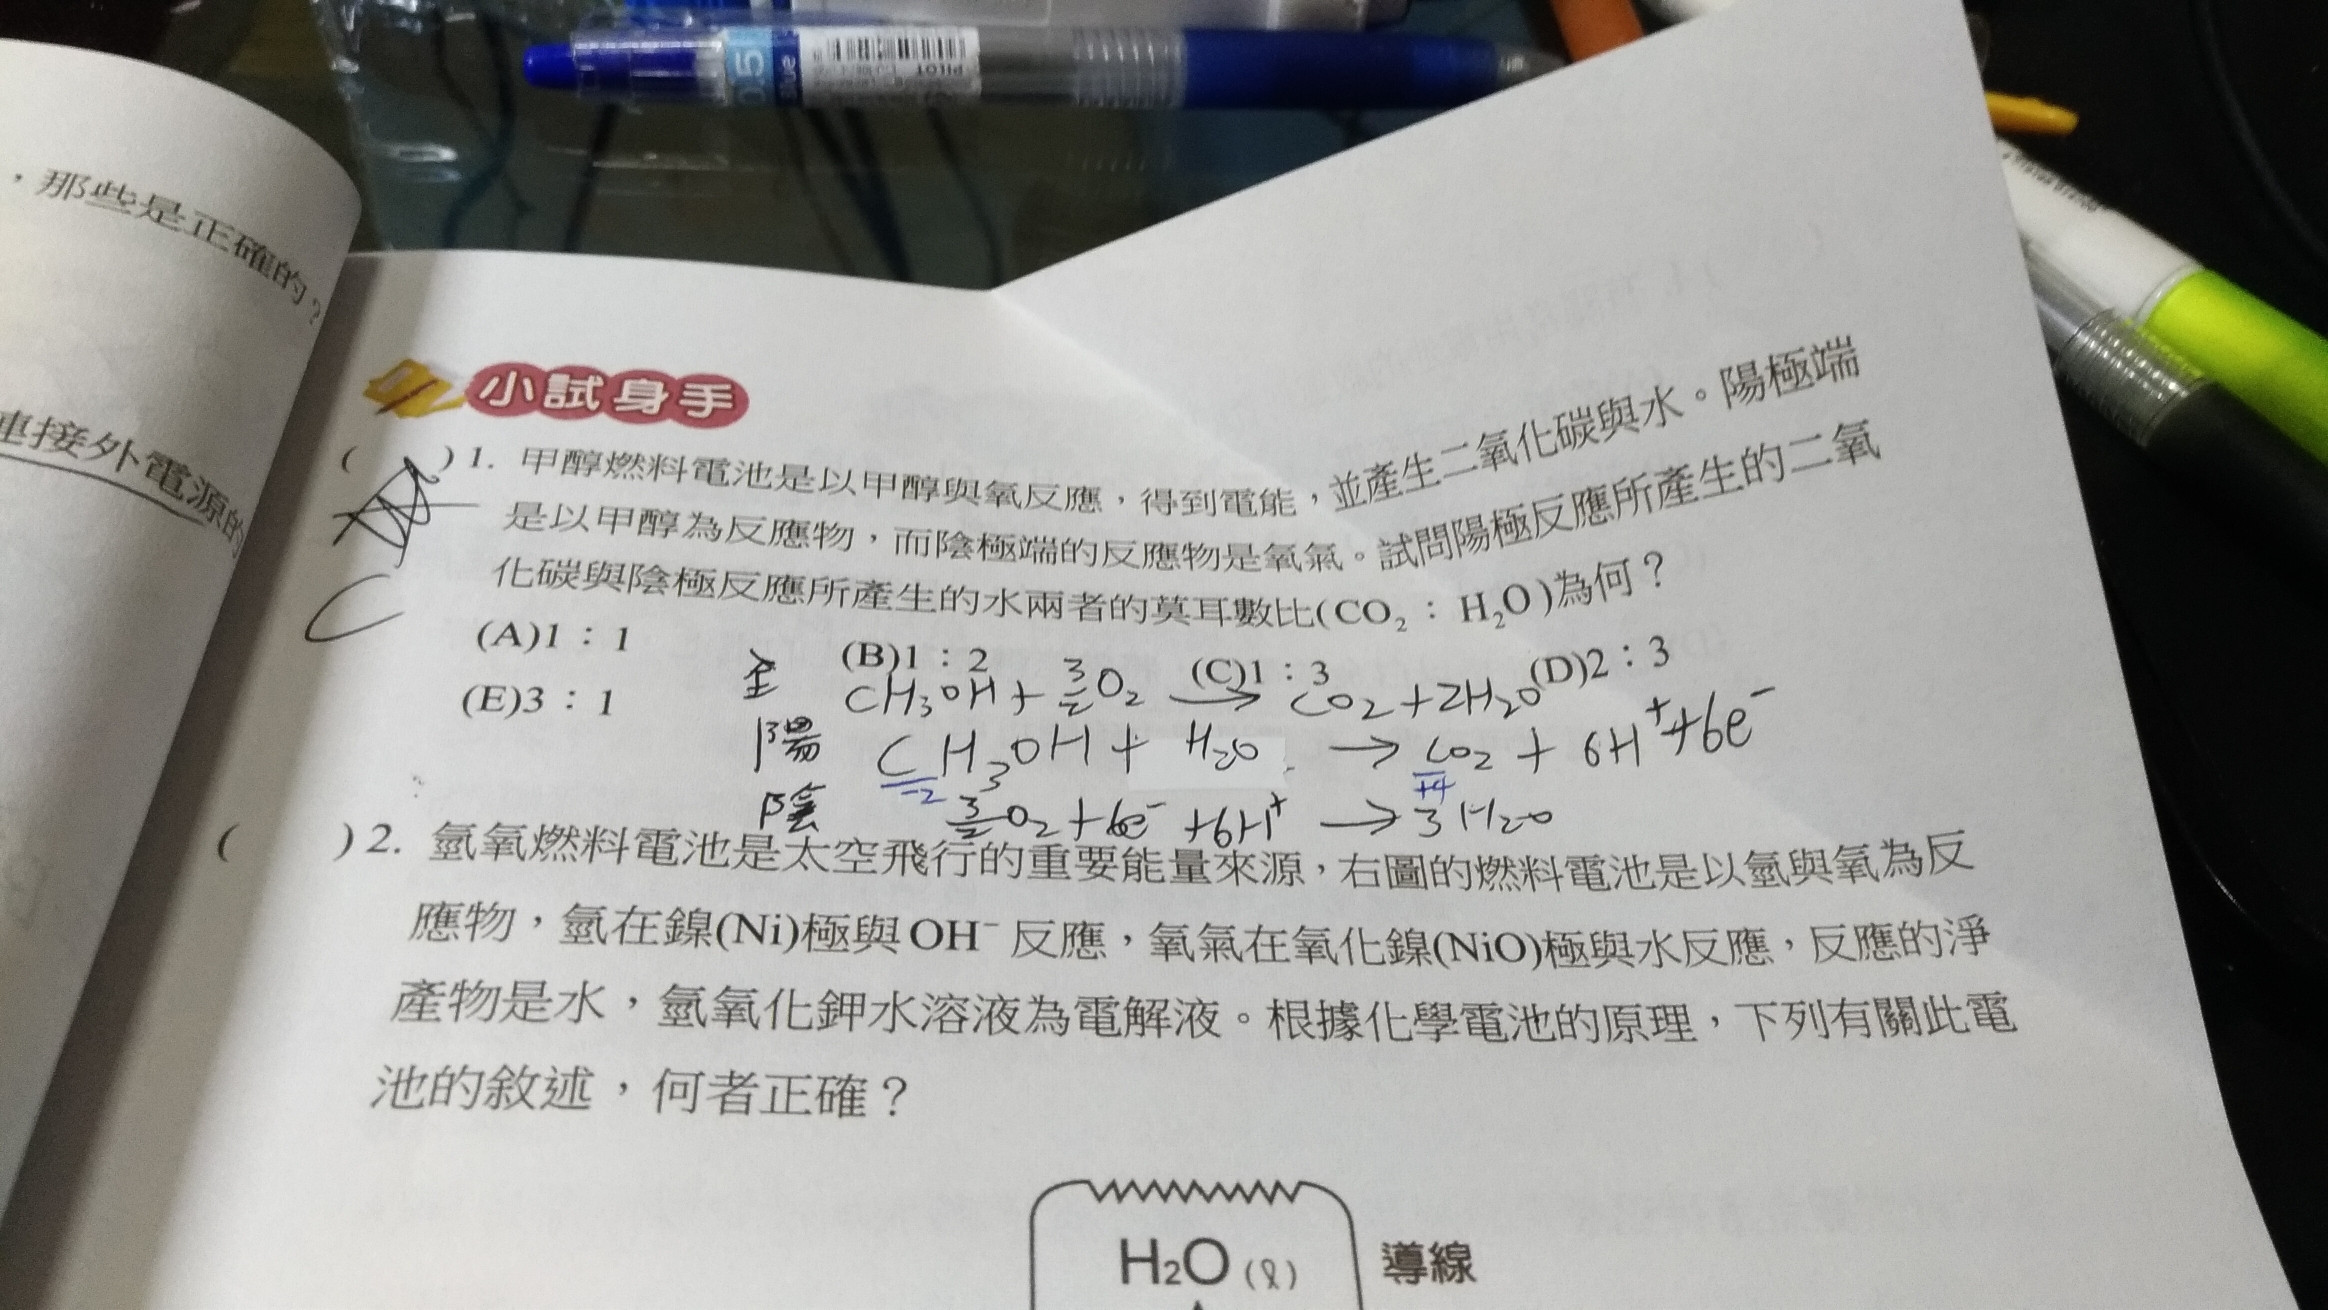 05
Blue
PILOT
，那些是正確的？
連接外電源的
小試身手
( )1. 甲醇燃料電池是以甲醇與氧反應，得到電能，並產生二氧化碳與水。陽極端
是以甲醇為反應物，而陰極端的反應物是氧氣。試問陽極反應所產生的二氧
化碳與陰極反應所產生的水兩者的莫耳數比(CO₂：H₂O)為何？
C
(A)1：1 (B)1：2 (C)1：3 (D)2：3
(E)3：1
全 CH₃OH + 3/2 O₂ → CO₂ + 2H₂O
陽 CH₃OH + H₂O → CO₂ + 6H⁺ + 6e⁻
-2 +4
陰 3/2 O₂ + 6e⁻ + 6H⁺ → 3H₂O
( )2. 氫氧燃料電池是太空飛行的重要能量來源，右圖的燃料電池是以氫與氧為反
應物，氫在鎳(Ni)極與OH⁻反應，氧氣在氧化鎳(NiO)極與水反應，反應的淨
產物是水，氫氧化鉀水溶液為電解液。根據化學電池的原理，下列有關此電
池的敘述，何者正確？
H₂O(ℓ) 導線